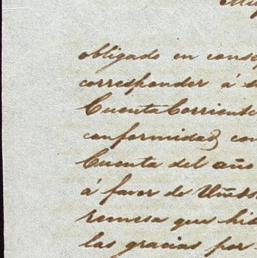 obligado en cons
corresponder á s
Cuenta Corriente
conformidad con
Cuenta del año
á favor de
remesa que hi
las gracias por